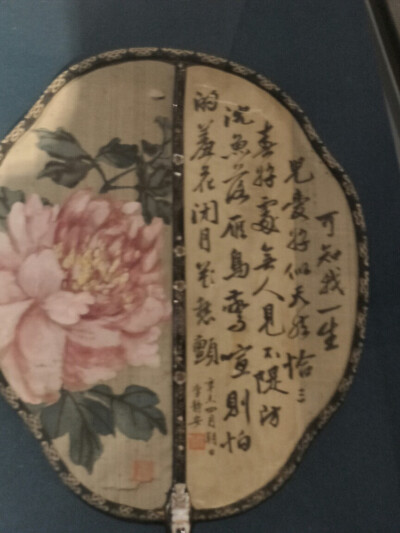 可知我一生
兒愛好似天然恰三
春好處無人見不隄防
沉魚落雁鳥驚喧則怕
的羞花閉月花愁顫
四月